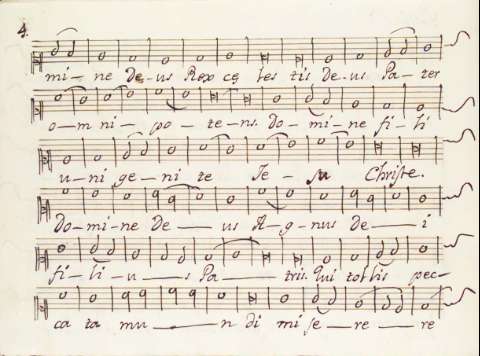 4.
mi- ne De-us Rex cę les tis De-us Pa- ter
o-m ni- po- te-ns. do- mi-ne fi- li
u-ni ge-ni te Je- su Christe.
Do-mi-ne De- us A-g-nus de- i
fi-li-u- s Pa- tris. Qui tol-lis pec-
ca ta mu- n di mi se- re- re